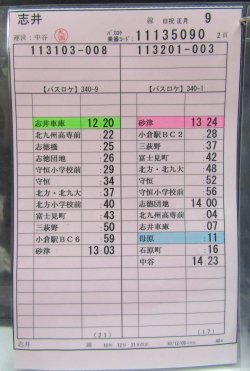 志井 線 日祝 正月 9
運営:中谷 バスロケ 乗番コード: 11135090 2頁
113103-008 113201-003
【バスロケ】340-9 【バスロケ】340-1
志井車庫 12 20 砂津 13 24
北九州高専前 :22 小倉駅BC2 :28
志徳橋 :25 三萩野 :34
志徳団地 :26 富士見町 :42
守恒小学校前 :29 北方・北九大 :48
守恒 :34 守恒 :52
北方・北九大 :37 守恒小学校前 :56
北方小学校前 :40 志徳団地 14 00
富士見町 :43 北九州高専前 :04
三萩野 :50 志井車庫 :07
小倉駅BC6 :59 母原 :11
砂津 13 03 石原町 :16
中谷 14 23
(21) (17)
志井 線